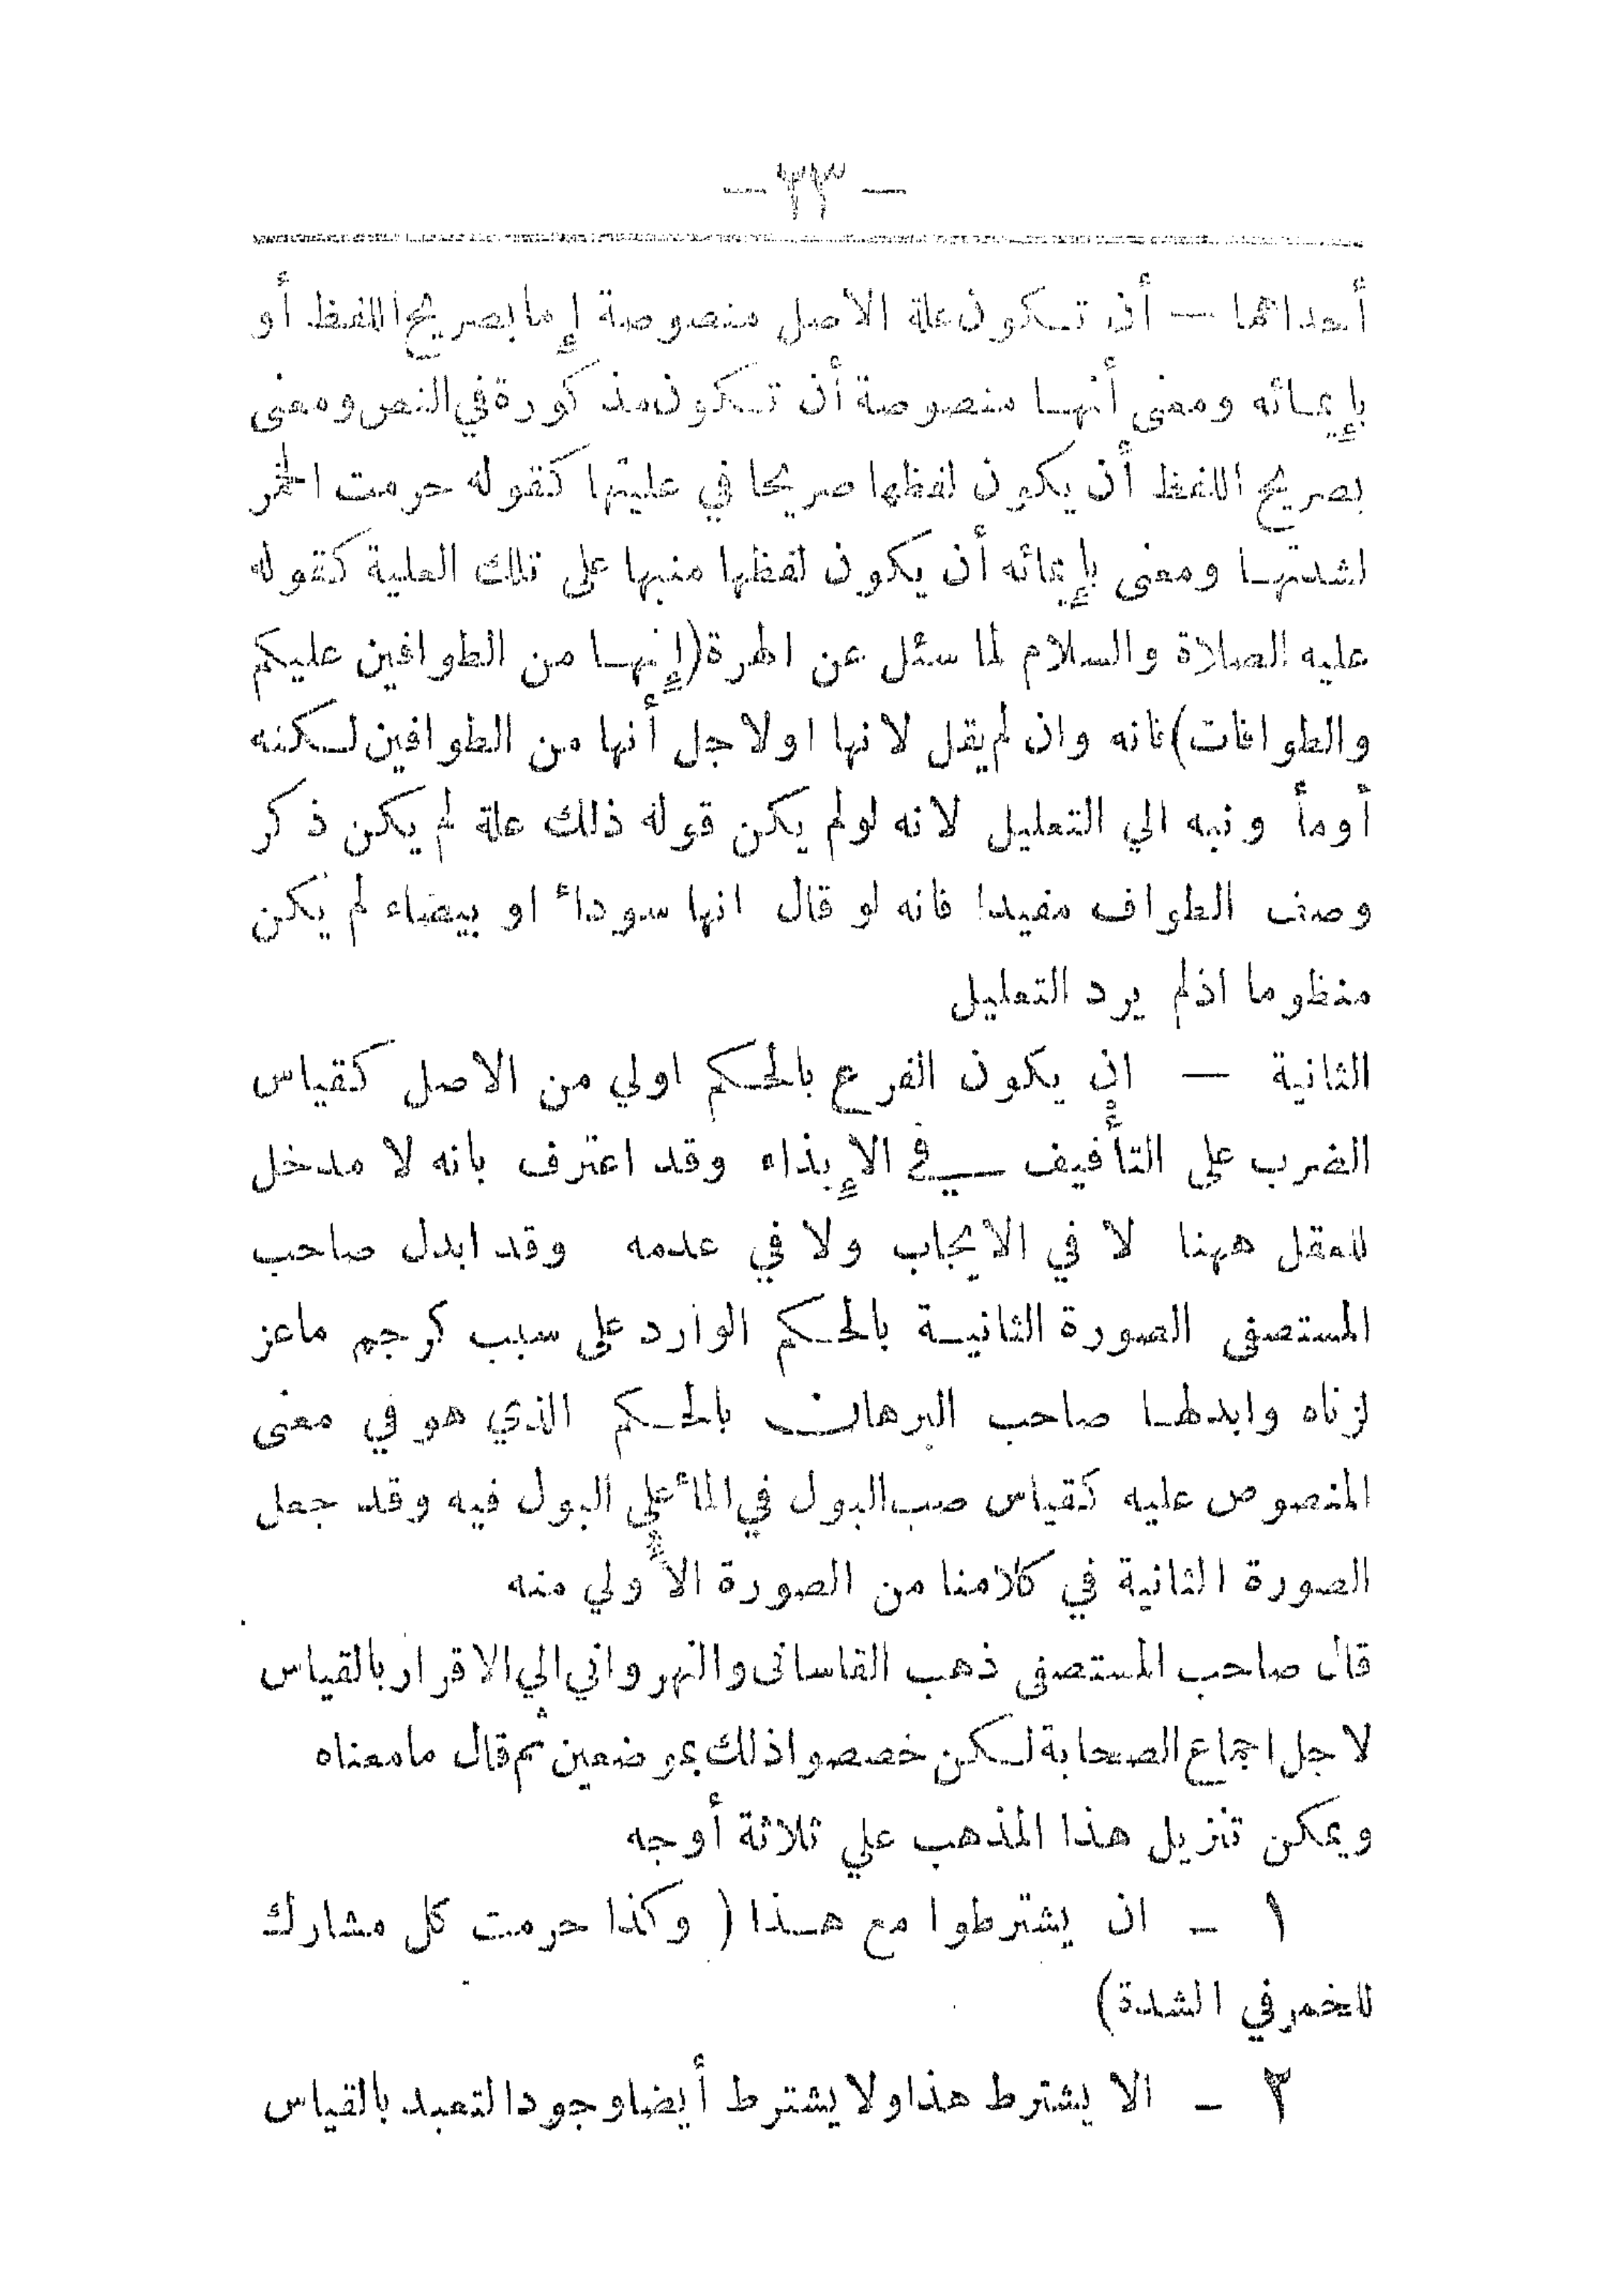 — ٣٣ —
أحداهما — أن تـكون علة الاصل منصوصة إما بصريح اللفظ أو
بإيمـائه ومعنى أنهـا منصوصة أن تـكون مذكورة في النص ومعنى
بصريح اللفظ أن يكون لفظها صريحا في عليتها كقوله حرمت الخمر
لشدتهـا ومعنى بإيمائه أن يكون لفظها منبها على تلك العلية كقوله
عليه الصلاة والسلام لما سئل عن الهرة (إنهـا من الطوافين عليكم
والطوافات) فانه وان لم يقل لانها اولاجل أنها من الطوافين لـكنه
أومأ ونبه الي التعليل لانه لولم يكن قوله ذلك علة لم يكن ذكر
وصف الطواف مفيدا فانه لو قال انها سوداء او بيضاء لم يكن
منظوما اذلم يرد التعليل
الثانية — ان يكون الفرع بالحـكم اولي من الاصل كقياس
الضرب على التأفيف في الإيذاء وقد اعترف بانه لا مدخل
للعقل ههنا لا في الايجاب ولا في عدمه وقد ابدل صاحب
المستصفى الصورة الثانيـة بالحـكم الوارد على سبب كرجم ماعز
لزناه وابدلهـا صاحب البرهان بالحـكم الذي هو في معنى
المنصوص عليه كقياس صب البول في الماء علي البول فيه وقد جعل
الصورة الثانية في كلامنا من الصورة الأولي منه
قال صاحب المستصفى ذهب القاسانى والنهرواني الي الاقرار بالقياس
لاجل اجماع الصحابة لـكن خصصوا ذلك بموضعين ثم قال مامعناه
ويمكن تنزيل هذا المذهب علي ثلاثة أوجه
١ – ان يشترطوا مع هـذا ( وكذا حرمت كل مشارك
للخمر في الشدة)
٢ – الا يشترط هذا ولا يشترط أيضا وجود التعبد بالقياس